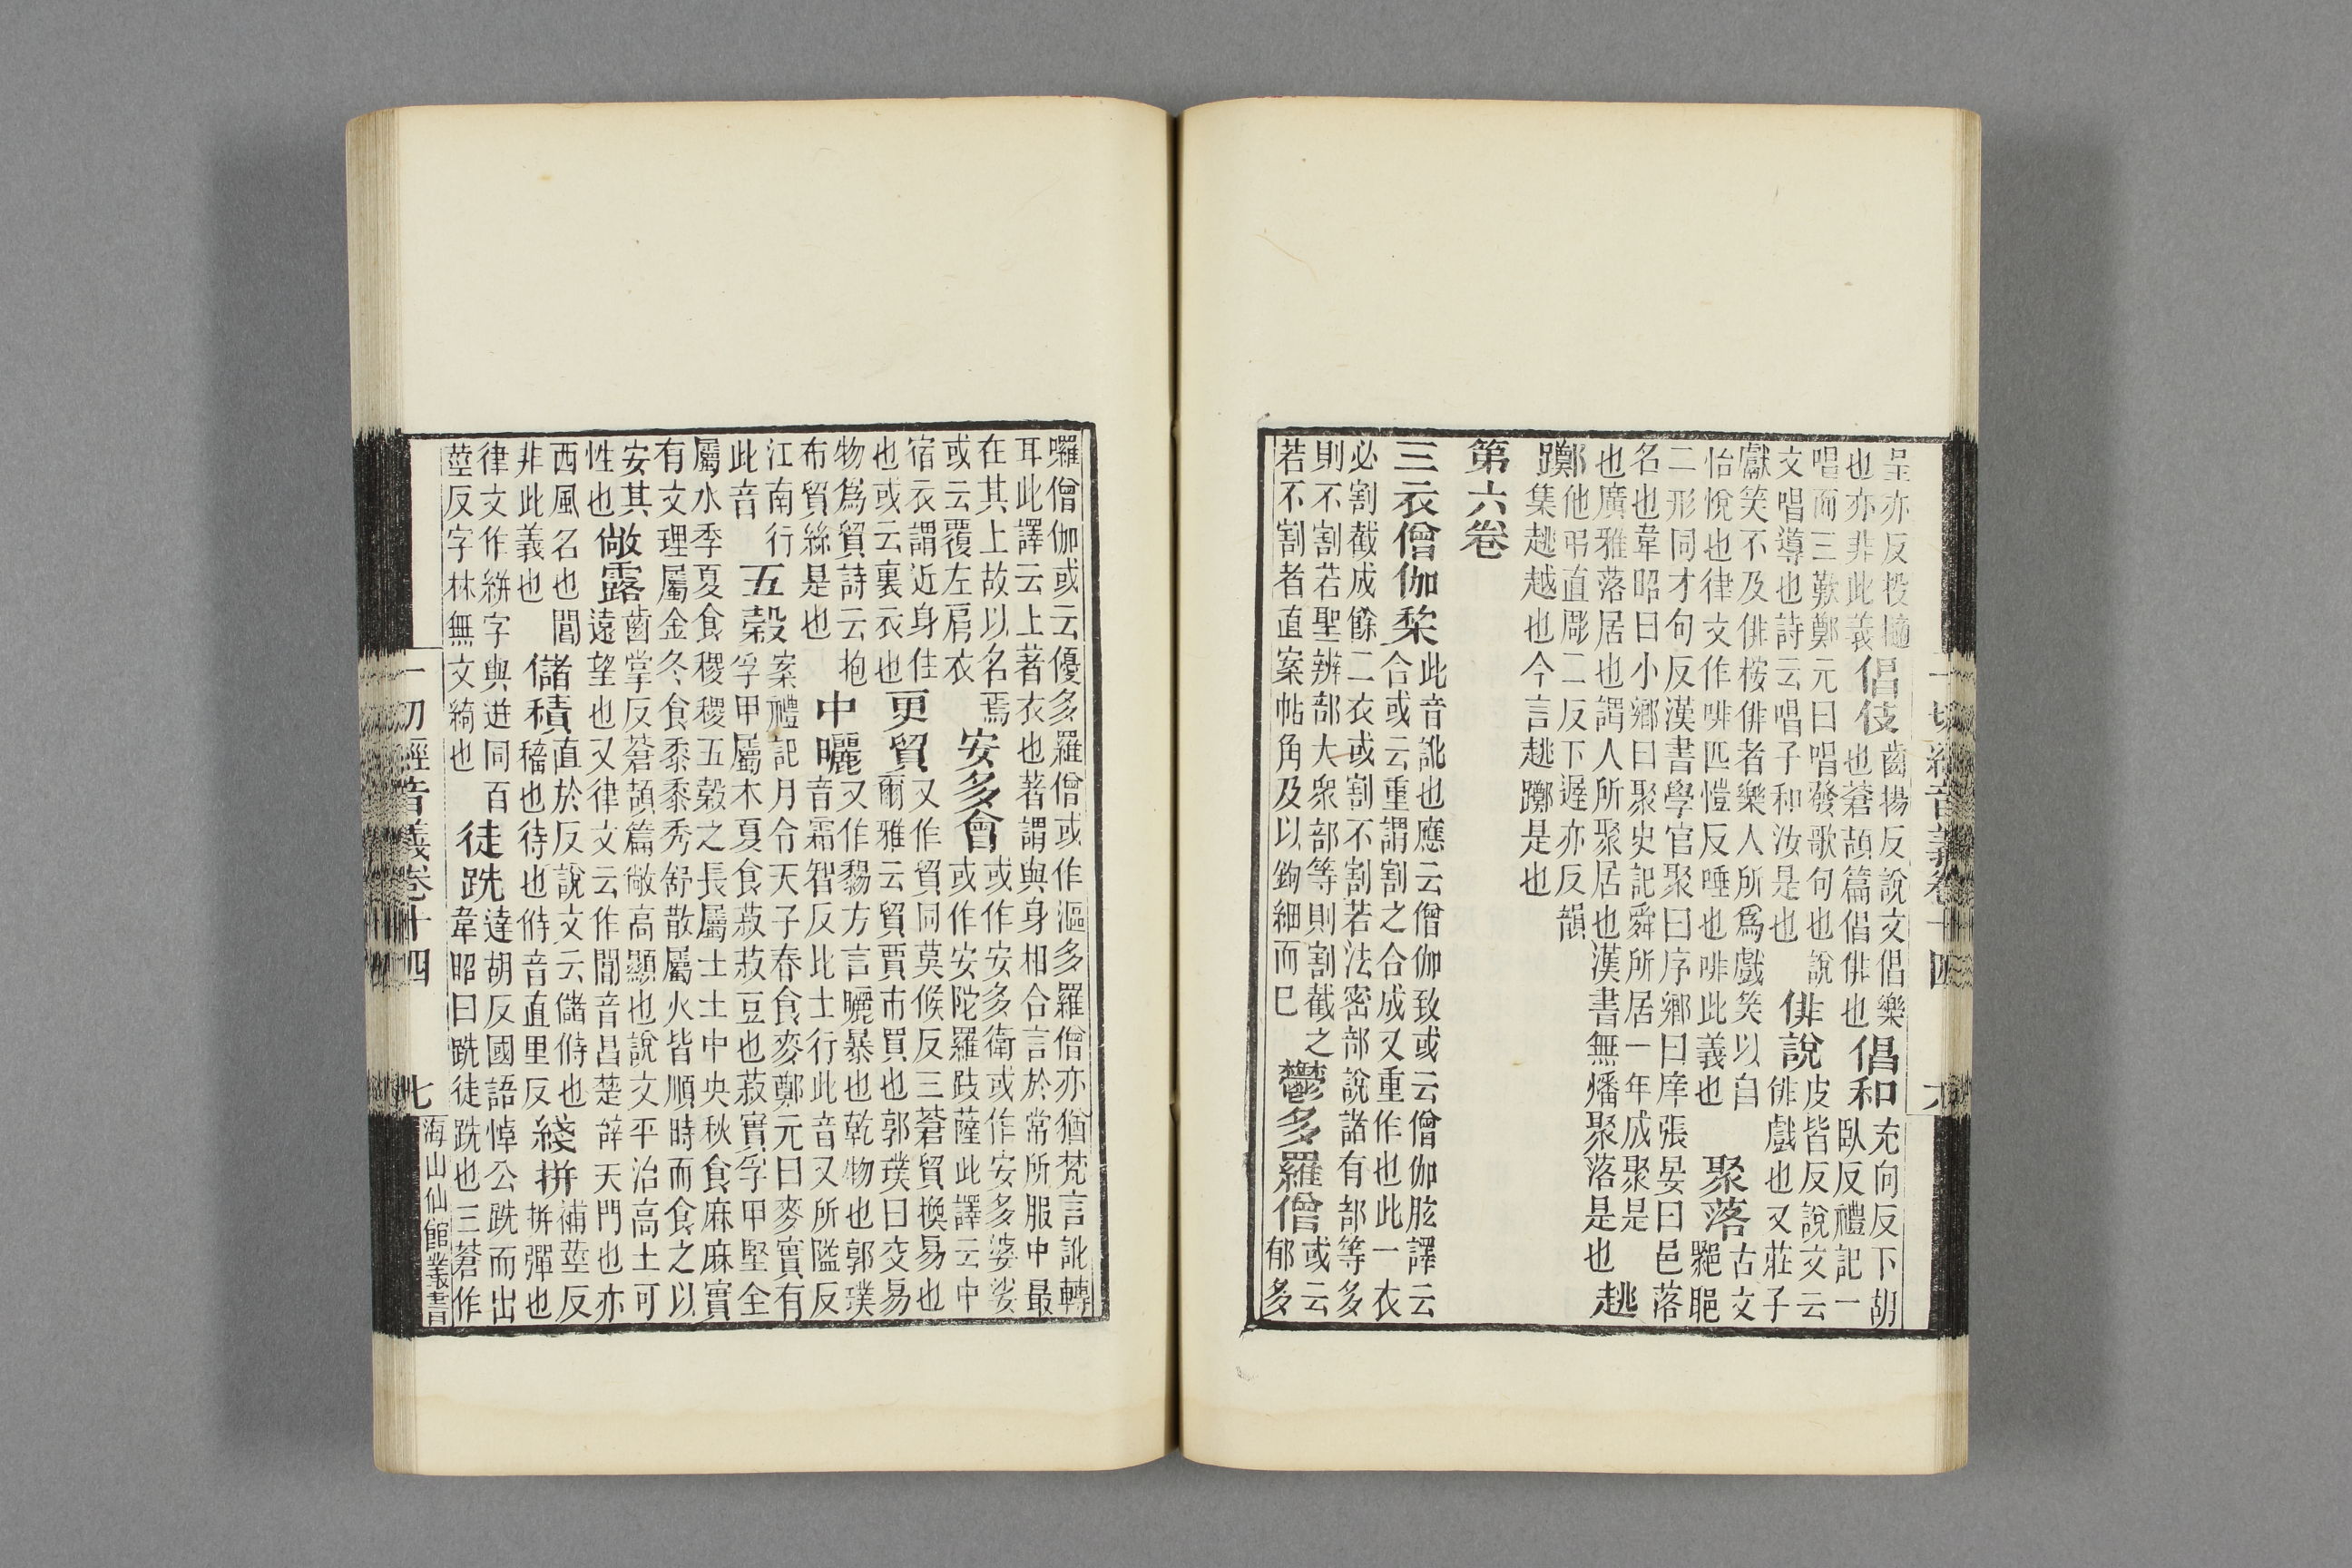 一切經音義卷十四
呈亦反投擿也亦非此義倡伎齒揚反說文倡樂也蒼頡篇倡俳也倡和充向反下胡臥反禮記一
唱而三歎鄭元曰唱發歌句也說文唱導也詩云唱子和汝是也俳說皮皆反說文云俳戲也又莊子
獻笑不及俳桉俳者樂人所爲戲笑以自怡悅也律文作啡匹愷反唾也啡此義也聚落古文
二形同才句反漢書學官聚曰序鄉曰庠張晏曰邑落名也韋昭曰小鄉曰聚史記舜所居一年成聚是
也廣雅落居也謂人所聚居也漢書無燔聚落是也趒
躑他弔直彫二反下遲亦反韻集趒越也今言趒躑是也
第六卷
三衣僧伽棃此音訛也應云僧伽致或云僧伽胝譯云合或云重謂割之合成又重作也此一衣
必割截成餘二衣或割不割若法密部說諸有部等多則不割若聖辨部大衆部等則割截之
若不割者直案帖角及以鉤細而巳鬱多羅僧或云郁多
囉僧伽或云優多羅僧或作漚多羅僧亦猶梵言訛轉耳此譯云上著衣也著謂與身相合言於常所服中最
在其上故以名焉或云覆左肩衣安多會或作安多衛或作安多婆娑或作安陀羅跋薩此譯云中
宿衣謂近身住也或云裏衣也更貿又作貿同莫候反三蒼貿換易也爾雅云貿賈市買也郭璞曰交易
物爲貿詩云抱布貿絲是也中曬又作方言曬暴也乾物也郭璞音霜智反北土行此音又所隘反
江南行此音五榖案禮記月令天子春食麥鄭元曰麥實有孚甲屬木夏食菽菽豆也菽實孚甲堅全
屬水季夏食稷稷五榖之長屬土土中央秋食麻麻實有文理屬金冬食黍黍秀舒散屬火皆順時而食之以
安其性也敞露齒掌反蒼頡篇敞高顯也說文平治高土可遠望也又律文云作閶音昌楚辝天門也亦
西風名也閶非此義也儲積直於反說文云儲偫也穡也待也偫音直里反綫拼補莖反拼彈也
律文作絣字與迸同百莖反字林無文綺也徒跣達胡反國語悼公跣而出韋昭曰跣徒跣也三蒼作
一切經音義卷十四 七 海山仙館叢書